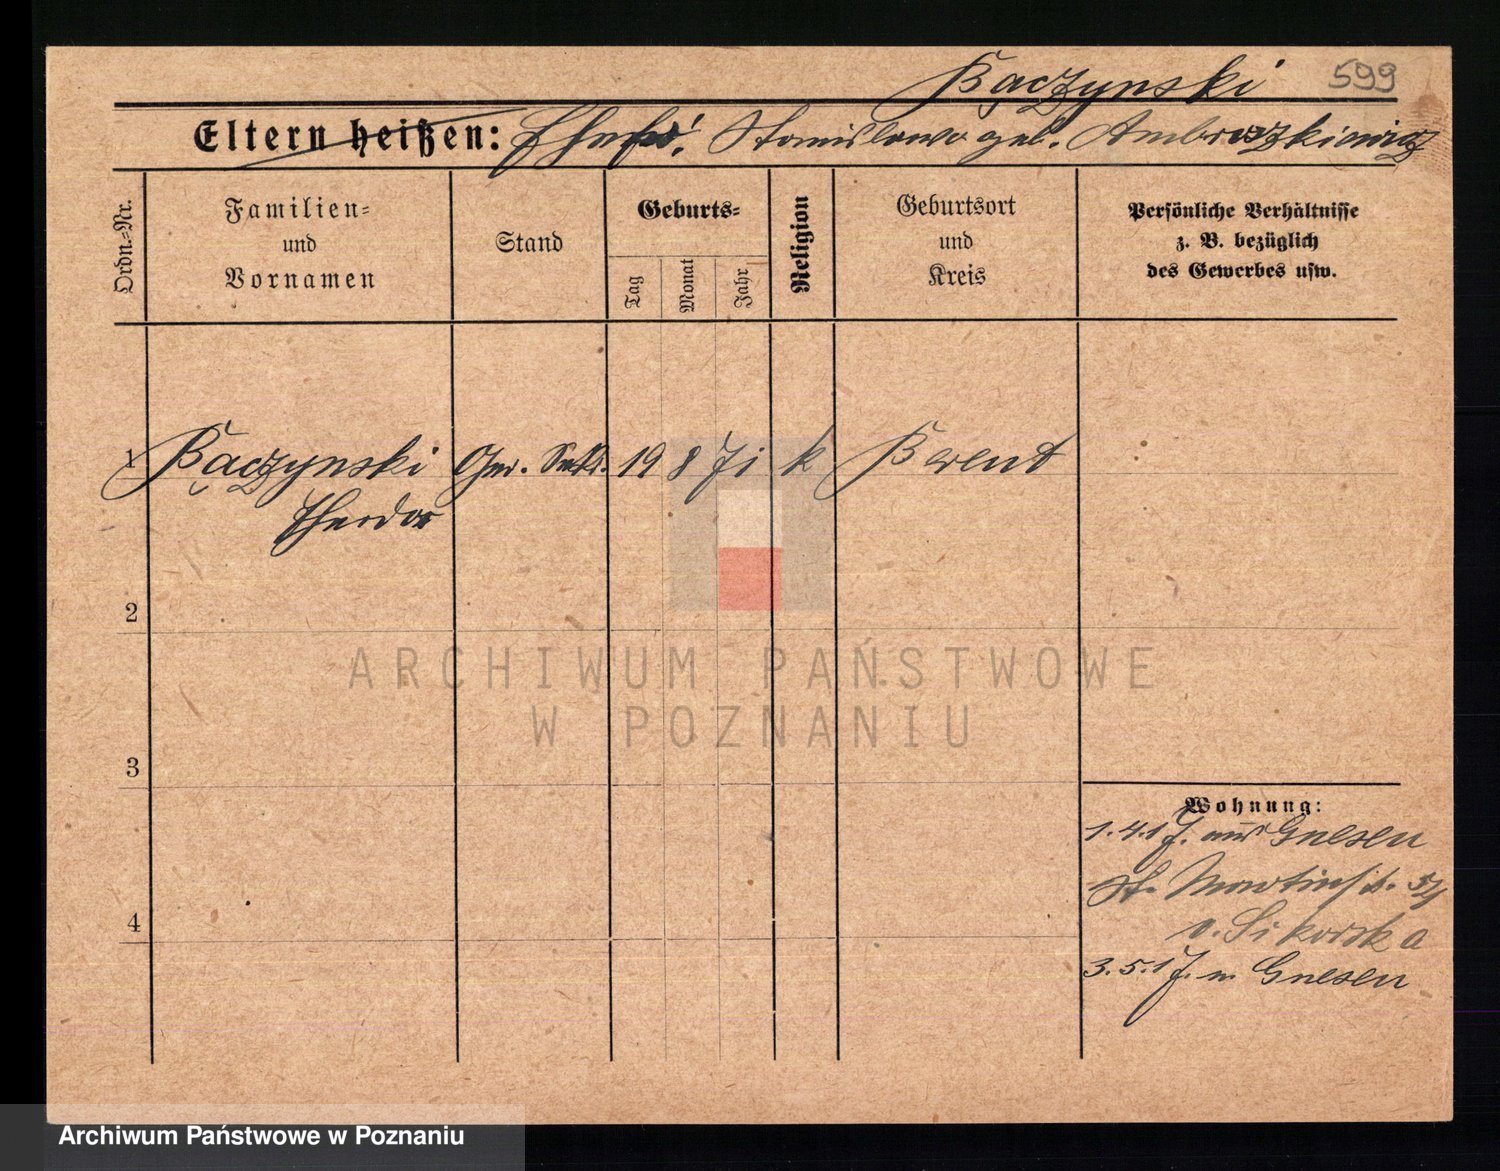 Bączynski 599
Eltern heißen: Ehefr: Stanislawa geb. Ambroszkiewicz
Ordn.=Nr.
Familien=
und
Vornamen
Stand
Geburts=
Tag
Monat
Jahr
Religion
Geburtsort
und
Kreis
Persönliche Verhältnisse
z. B. bezüglich
des Gewerbes usw.
1 Bączynski Ger. Sekr. 19 8 71 k Berent
Theodor
2
3
4
Wohnung:
1.4.17. aus Gnesen
St. Martinstr.
v. Sikorska
3.5.17. n. Gnesen
ARCHIWUM PAŃSTWOWE
W POZNANIU
Archiwum Państwowe w Poznaniu